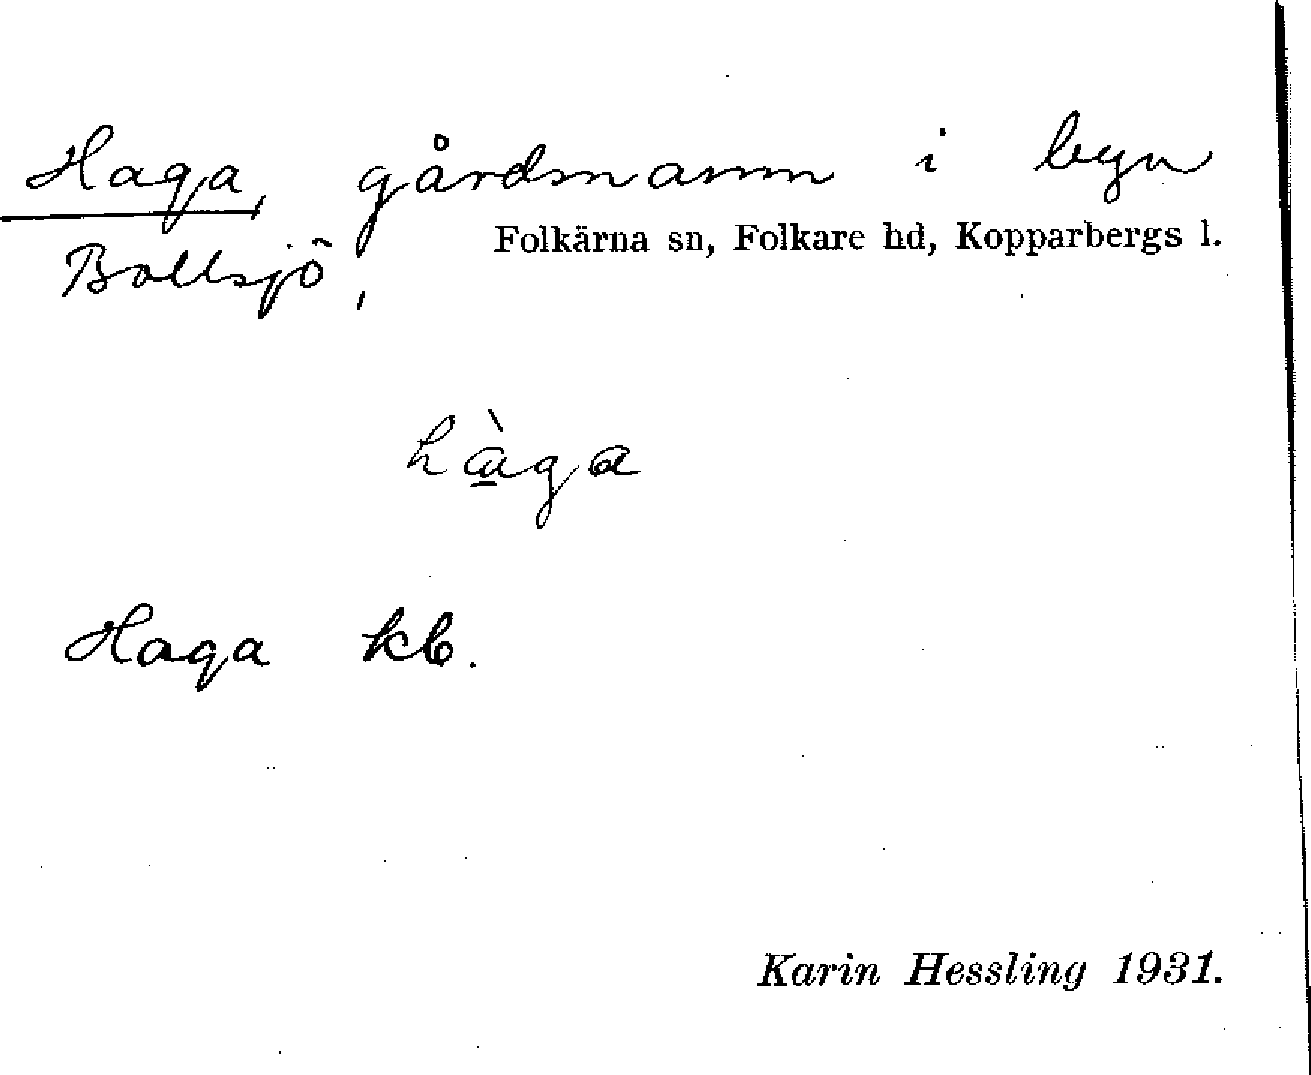 Haga, gårdsnamn i byn
Folkärna sn, Folkare hd, Kopparbergs l.
Bollsjö,
hà̱ga
Haga kb.
Karin Hessling 1931.